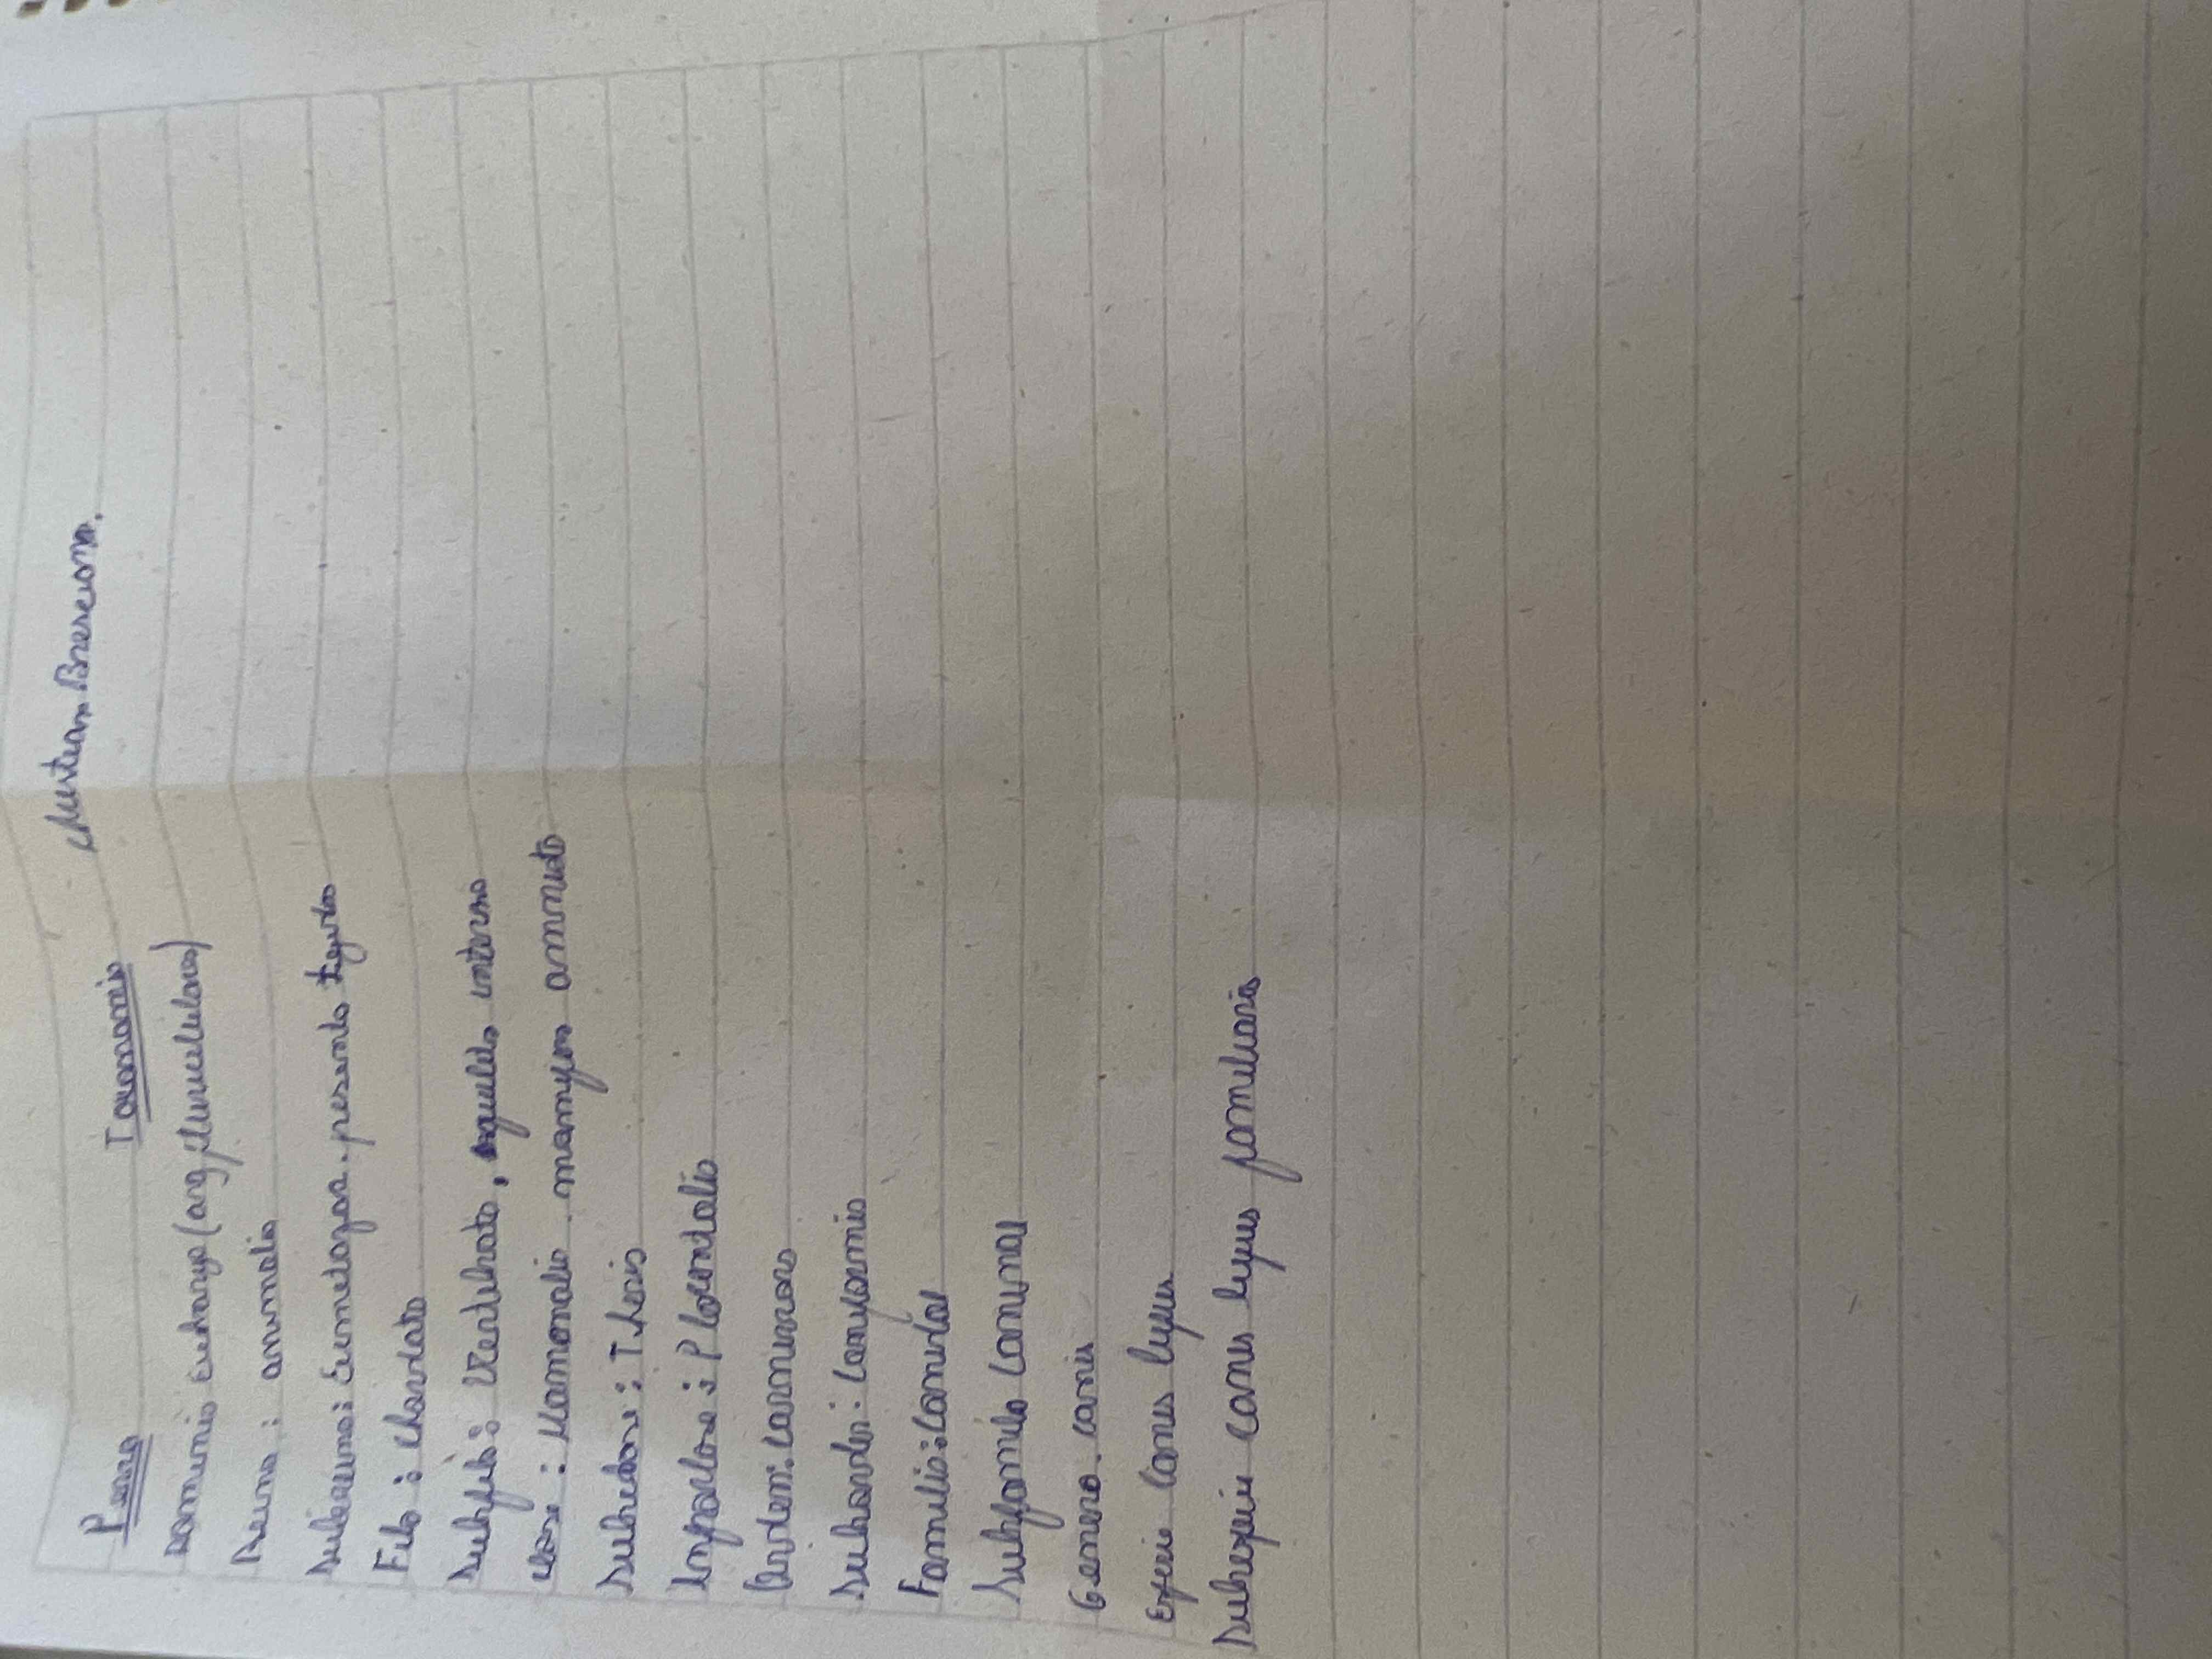 Perro Taxonomia
Dominio Eukarya (org pluricelulares)
Reino : animalia
Subreino: Eumetazoa. presenta tejidos
Filo : chordata
Subfilo: Vertebrata, esqueleto interno
clase : Mammalia . mamifero amniota
Subclase : Theria
Infraclase : Placentalia
Orden: carnivora
Suborden: Caniformia
Familia: Canidae
Subfamilia Caninae
Genero. canis
Especie Canis lupus
Subespecie canis lupus familiaris